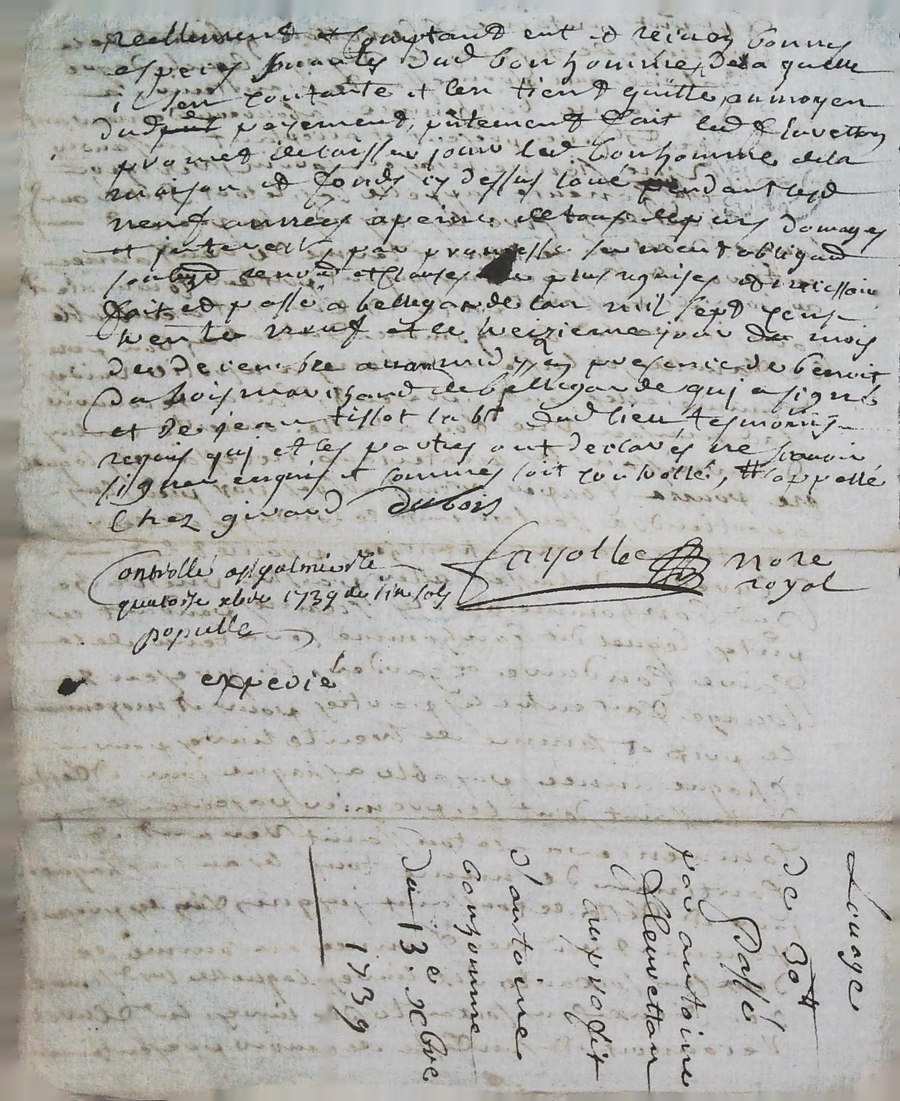 reellement et comptand eut et reçeu en bonnes
especes dud bonhomme, de la quelle
il s'en contante et l'en tient quitte, au moyen
dud payement, led Clavettон
promet de laisser jouir led. bonhomme de la
maison et fonds cy dessus loué pendant lesd
neuf années a peine de tous depens domages
et interets, par promesse serment obligaõn
et clauses requises et necessaires
fait et passé a bellegarde l'an mil sept cens
trente neuf et le treizieme jour du mois
de decembre avant midy en presence de benoit
Dubois marchand de bellegarde qui a signé
et de jean tissot dud lieu tesmoins
requis qui et les parties ont declarés ne sçavoir
signer enquis et sommés soit controllé, appellé
Chez girard Dubois
Fayolle nore
royal
Controllé a st galmier le
quatorze xbre 1739 douze sols
populle
expedié
Louage
de 30tt
Passé
par antoine
Clavetton
au profit
d'antoine
bonjomme
Du 13e xbre
1739